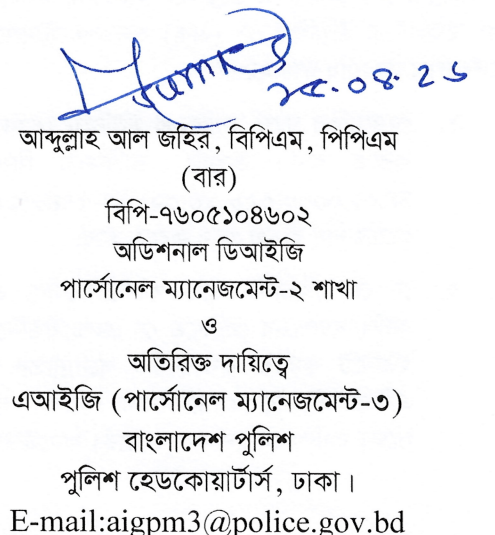 ২৫.০৪.২৬
আব্দুল্লাহ আল জহির, বিপিএম, পিপিএম
(বার)
বিপি-৭৬০৫১০৪৬০২
অডিশনাল ডিআইজি
পার্সোনেল ম্যানেজমেন্ট-২ শাখা
ও
অতিরিক্ত দায়িত্বে
এআইজি (পার্সোনেল ম্যানেজমেন্ট-৩)
বাংলাদেশ পুলিশ
পুলিশ হেডকোয়ার্টার্স, ঢাকা।
E-mail:aigpm3@police.gov.bd